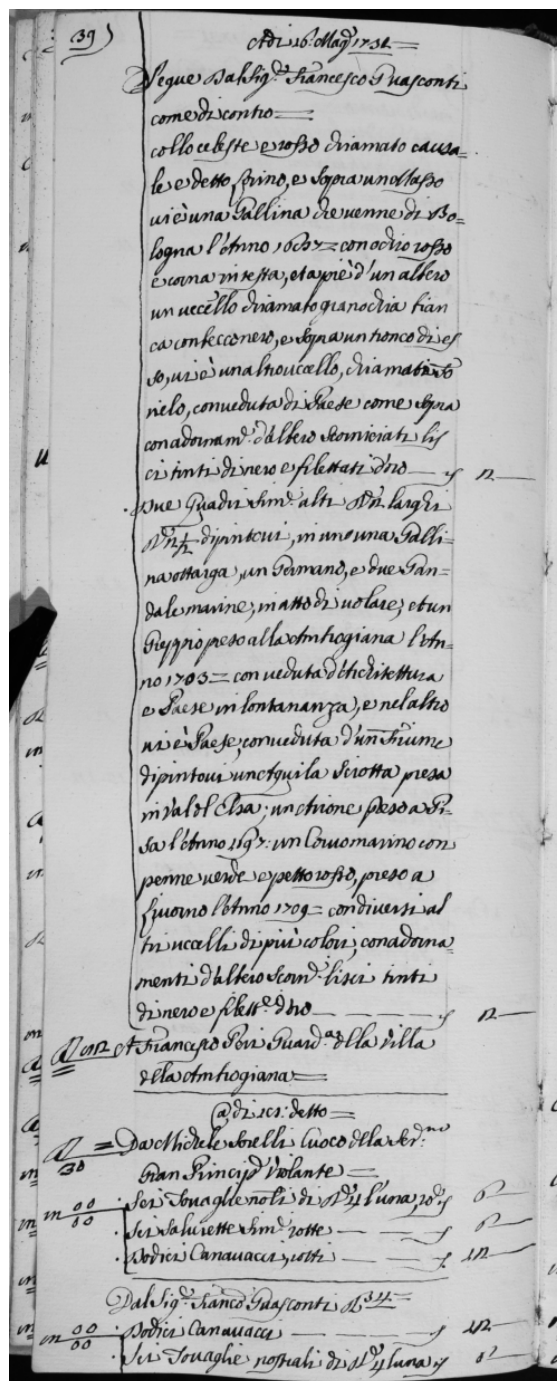 39)
Adi 16: Magg.º 1731 =
Segue Dal Sig.r Francesco Guasconti
come di contro =
collo celeste e rosso chiamato
le e detto e sopra un Masso
vi è una Gallina che venne di Bo=
logna l'Anno con ochio rosso
e corna in testa, et a piè d'un albero
un uccello chiamato gianochia bian
ca con becco nero, e sopra un tronco di es
so, vi è un altro uccello, chiamato
rielo, con veduta di Paese come sopra
con adornam.ti d'albero scorniciati lis
ci tinti di nero e filettati d'oro — n.º 2 —
Due Quadri sim.li alti B.a 2 larghi
B.a 2 1/2 dipintovi, in uno una Galli=
na ottarga, un Germano, e due Gan=
dale marine, in atto di volare, et un
Greppio preso alla Ambrogiana l'An=
no 1703 = con veduta d'Architettura
e Paese in lontananza, e nel altro
vi è Paese, con veduta d'un Fiume
dipintovi un Aquila Sciotta presa
in Val d'Elsa, un Airone preso a Pi=
sa l'Anno 1697: un Corvo marino con
penne verde e petto rosso, preso a
Livorno l'Anno 1709 = con diversi al
tri uccelli di più colori, con adorna=
menti d'albero scorn.ti lisci tinti
di nero e filett.ti d'oro — — — n.º 2 —
A Francesco Peri Guard.a della Villa
della Ambrogiana =
@ di 21: detto =
Da Michele Sorelli Cuoco della Ser.ma
30
Gran Princip.a Violante =
Sei Tovaglie noli di B.a 4 l'una, — n.º 6 —
Sei salviette sim.li rotte — — n.º 6 —
Dodici Canavacci, rotti — — n.º 12 —
Dal Sig.r Franc.o Guasconti
Dodici Canavacci — — n.º 12 —
Sei Tovaglie nostrali di B.a 4 l'una n.º 6